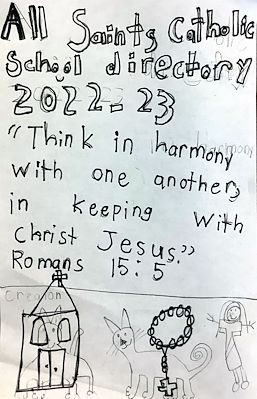 All Saints Catholic
School directory
2022-23
"Think in harmony
with one another,
in keeping with
Christ Jesus."
Romans 15:5
Creation